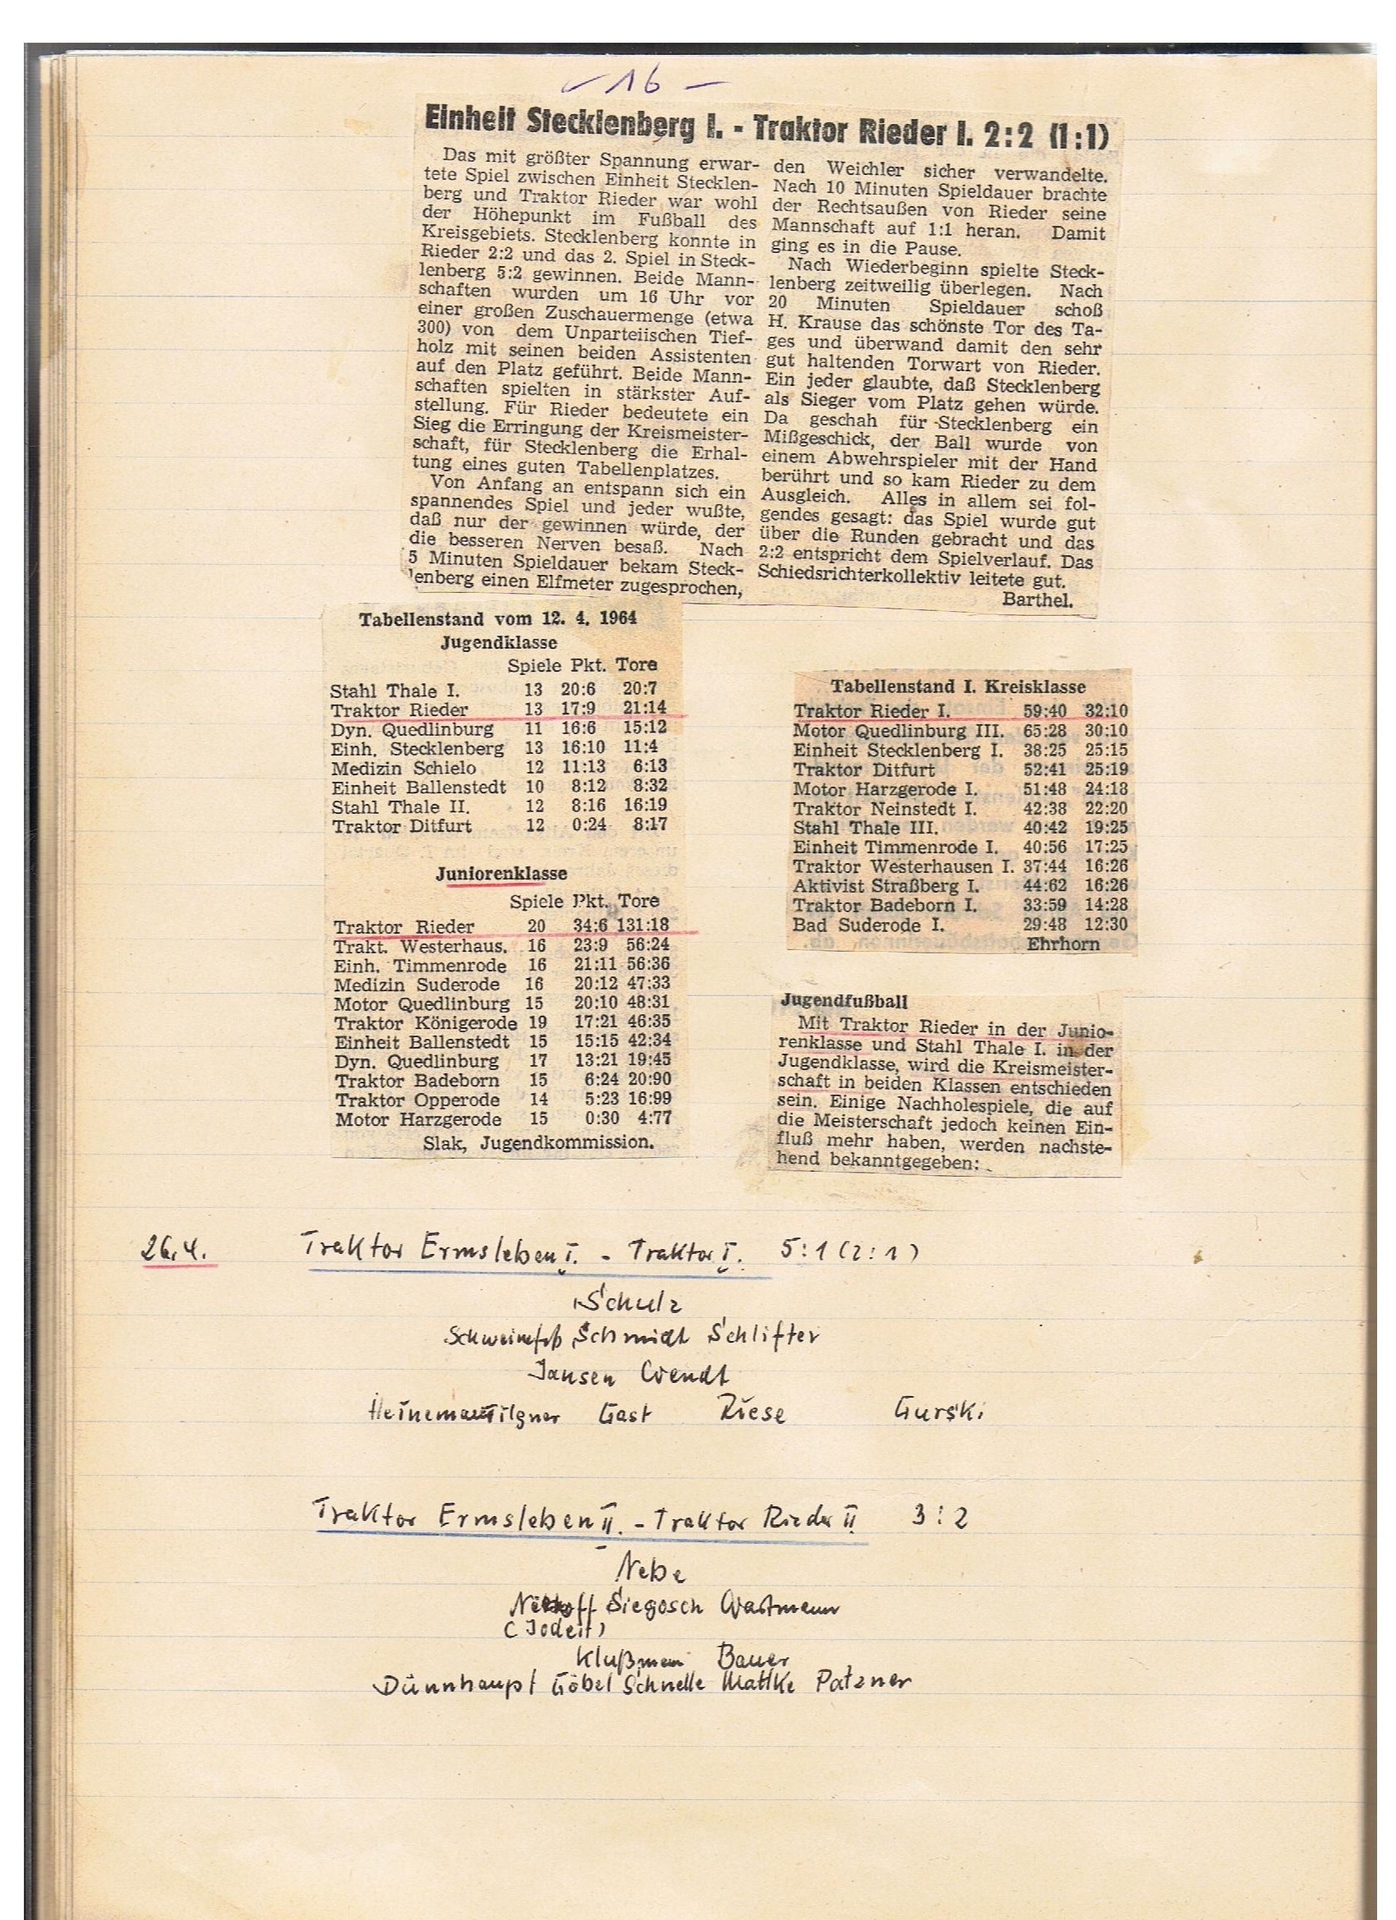 - 16 -
Einheit Stecklenberg I. - Traktor Rieder I. 2:2 (1:1)
Das mit größter Spannung erwar-
tete Spiel zwischen Einheit Stecklen-
berg und Traktor Rieder war wohl
der Höhepunkt im Fußball des
Kreisgebiets. Stecklenberg konnte in
Rieder 2:2 und das 2. Spiel in Steck-
lenberg 5:2 gewinnen. Beide Mann-
schaften wurden um 16 Uhr vor
einer großen Zuschauermenge (etwa
300) von dem Unparteiischen Tief-
holz mit seinen beiden Assistenten
auf den Platz geführt. Beide Mann-
schaften spielten in stärkster Auf-
stellung. Für Rieder bedeutete ein
Sieg die Erringung der Kreismeister-
schaft, für Stecklenberg die Erhal-
tung eines guten Tabellenplatzes.
Von Anfang an entspann sich ein
spannendes Spiel und jeder wußte,
daß nur der gewinnen würde, der
die besseren Nerven besaß. Nach
5 Minuten Spieldauer bekam Steck-
lenberg einen Elfmeter zugesprochen,
den Weichler sicher verwandelte.
Nach 10 Minuten Spieldauer brachte
der Rechtsaußen von Rieder seine
Mannschaft auf 1:1 heran. Damit
ging es in die Pause.
Nach Wiederbeginn spielte Steck-
lenberg zeitweilig überlegen. Nach
20 Minuten Spieldauer schoß
H. Krause das schönste Tor des Ta-
ges und überwand damit den sehr
gut haltenden Torwart von Rieder.
Ein jeder glaubte, daß Stecklenberg
als Sieger vom Platz gehen würde.
Da geschah für Stecklenberg ein
Mißgeschick, der Ball wurde von
einem Abwehrspieler mit der Hand
berührt und so kam Rieder zu dem
Ausgleich. Alles in allem sei fol-
gendes gesagt: das Spiel wurde gut
über die Runden gebracht und das
2:2 entspricht dem Spielverlauf. Das
Schiedsrichterkollektiv leitete gut.
Barthel.
Tabellenstand vom 12. 4. 1964
Jugendklasse
Spiele Pkt. Tore
Stahl Thale I. 13 20:6 20:7
Traktor Rieder 13 17:9 21:14
Dyn. Quedlinburg 11 16:6 15:12
Einh. Stecklenberg 13 16:10 11:4
Medizin Schielo 12 11:13 6:13
Einheit Ballenstedt 10 8:12 8:32
Stahl Thale II. 12 8:16 16:19
Traktor Ditfurt 12 0:24 8:17
Juniorenklasse
Spiele Pkt. Tore
Traktor Rieder 20 34:6 131:18
Trakt. Westerhaus. 16 23:9 56:24
Einh. Timmenrode 16 21:11 56:36
Medizin Suderode 16 20:12 47:33
Motor Quedlinburg 15 20:10 48:31
Traktor Königerode 19 17:21 46:35
Einheit Ballenstedt 15 15:15 42:34
Dyn. Quedlinburg 17 13:21 19:45
Traktor Badeborn 15 6:24 20:90
Traktor Opperode 14 5:23 16:99
Motor Harzgerode 15 0:30 4:77
Slak, Jugendkommission.
Tabellenstand I. Kreisklasse
Traktor Rieder I. 59:40 32:10
Motor Quedlinburg III. 65:28 30:10
Einheit Stecklenberg I. 38:25 25:15
Traktor Ditfurt 52:41 25:19
Motor Harzgerode I. 51:48 24:18
Traktor Neinstedt I. 42:38 22:20
Stahl Thale III. 40:42 19:25
Einheit Timmenrode I. 40:56 17:25
Traktor Westerhausen I. 37:44 16:26
Aktivist Straßberg I. 44:62 16:26
Traktor Badeborn I. 33:59 14:28
Bad Suderode I. 29:48 12:30
Ehrhorn
Jugendfußball
Mit Traktor Rieder in der Junio-
renklasse und Stahl Thale I. in der
Jugendklasse, wird die Kreismeister-
schaft in beiden Klassen entschieden
sein. Einige Nachholespiele, die auf
die Meisterschaft jedoch keinen Ein-
fluß mehr haben, werden nachste-
hend bekanntgegeben:
26.4. Traktor Ermsleben I. - Traktor I. 5:1 (2:1)
Schulz
Schmidt Schlifter
Jansen Wendt
Heinemann Tilgner Gast Riese Gurski
Traktor Ermsleben II. - Traktor Rieder II 3:2
Nebe
Siegosch Wastmann
(Jodeit)
Klußmann Bauer
Dünnhaupt Göbel Schnelle Mattke Patzner